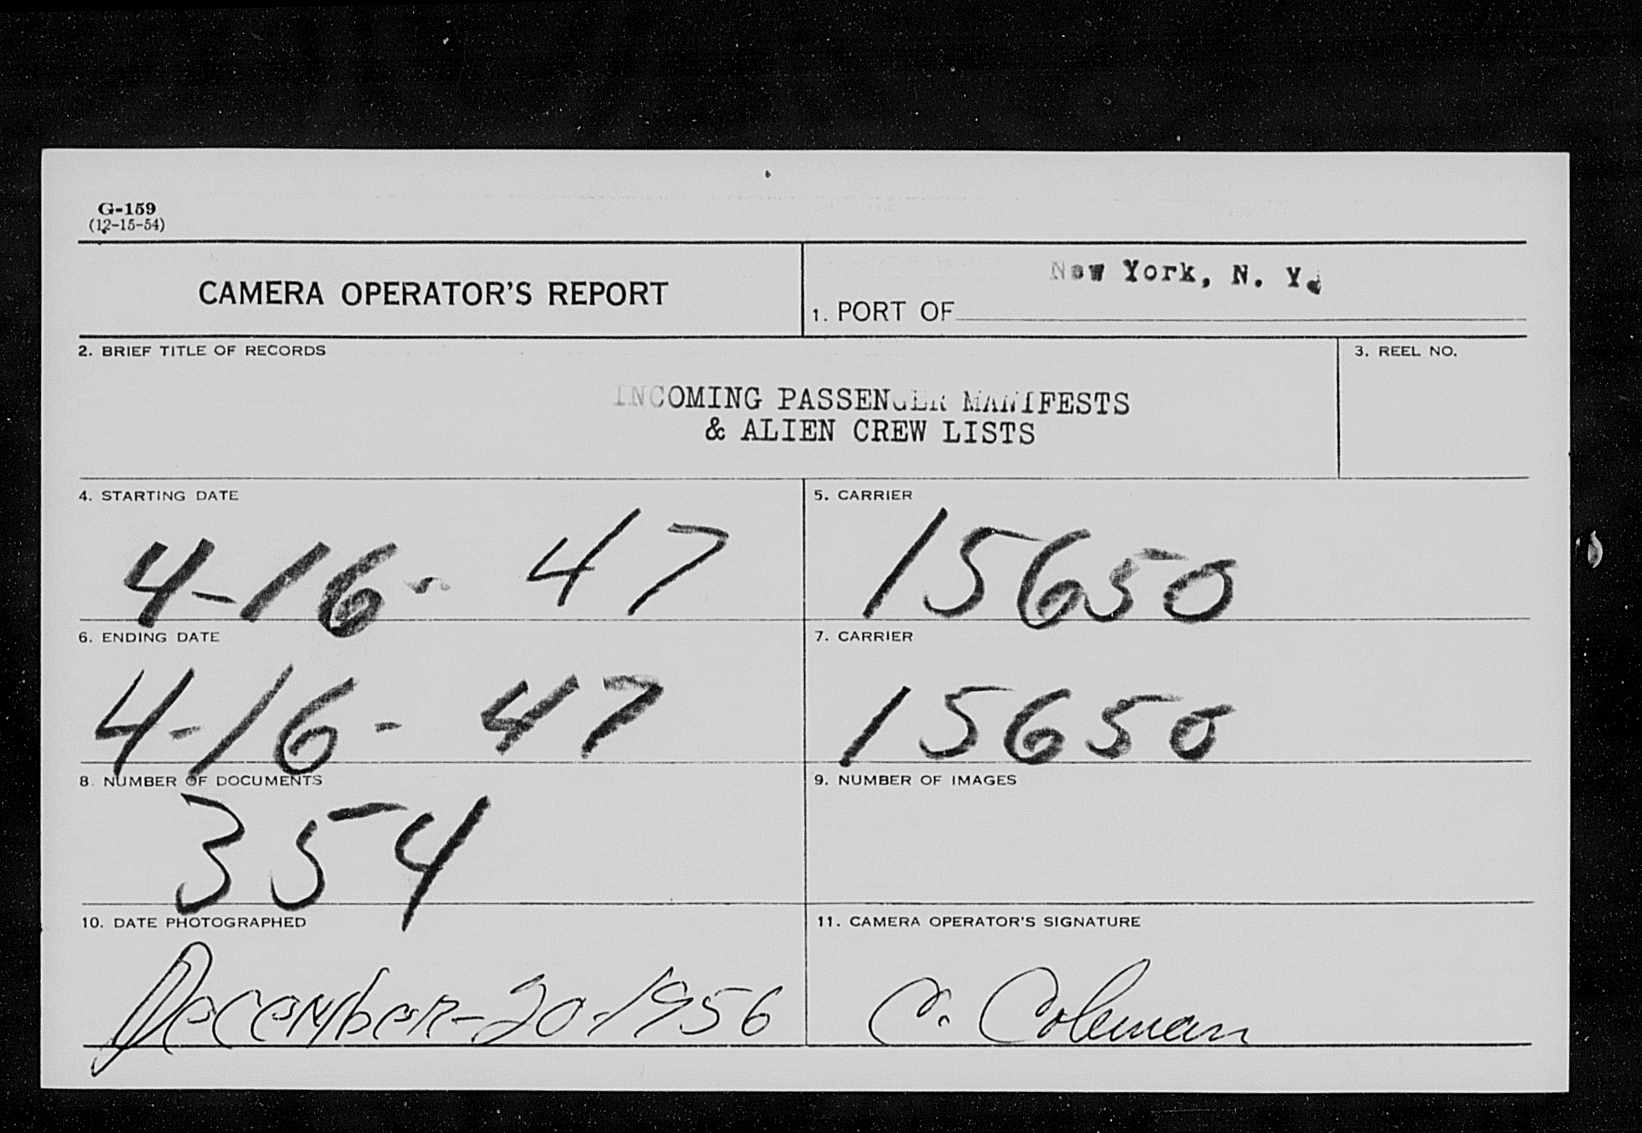 G-159
(12-15-54)
CAMERA OPERATOR'S REPORT
New York, N. Y.
1. PORT OF
2. BRIEF TITLE OF RECORDS
3. REEL NO.
INCOMING PASSENGER MANIFESTS
& ALIEN CREW LISTS
4. STARTING DATE
4-16-47
5. CARRIER
15650
6. ENDING DATE
4-16-47
7. CARRIER
15650
8. NUMBER OF DOCUMENTS
354
9. NUMBER OF IMAGES
10. DATE PHOTOGRAPHED
December-20-1956
11. CAMERA OPERATOR'S SIGNATURE
C. Coleman